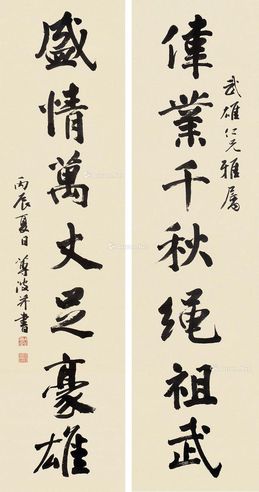 武雄仁兄雅屬
偉業千秋繩祖武
盛情萬丈足豪雄
丙辰夏日